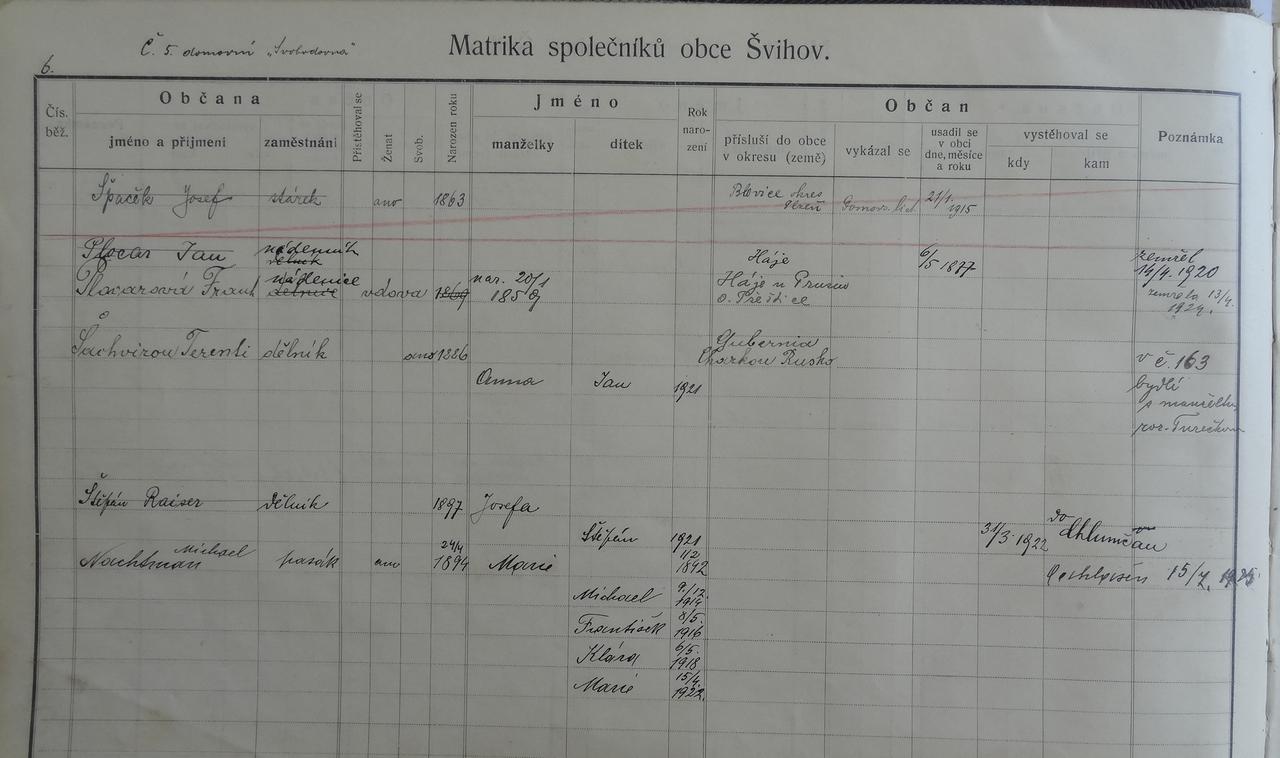 6.
Č. 5. domovní „Svobodovna"
Matrika společníků obce Švihov.
Čís. běž.
Občana
jméno a přijmení
zaměstnání
Přistěhoval se
Ženat
Svob.
Narozen roku
Jméno
manželky
dítek
Rok naro- zení
Občan
přísluší do obce v okresu (země)
vykázal se
usadil se v obci dne, měsíce a roku
vystěhoval se
kdy
kam
Poznámka
Špaček Josef stárek ano 1863 Blovice okres Plzeň Domov. list 21/1 1915
Plocar Jan nádenník dělník Háje 6/5 1877 zemřel 14/4. 1920
nádenice dělnice vdova 1869 nar. 20/1 185 Háje u o. Přeštice zemřela 13/4. 1924.
Terenti dělník ano 1886 Gubernia Charkou Rusko v č. 163
Anna Jan 1921 bydlí
s
Štěpán Raiser dělník 1897 Josefa
Štěpán 1921 31/3. 1922 do
Nachtman Michael pasák ano 24/4 1894 Marie 1/2 1842 15/7. 1925
Michael 9/12 1914
František 8/5. 1916
Klára 6/5. 1918
Marie 15/4. 1922.